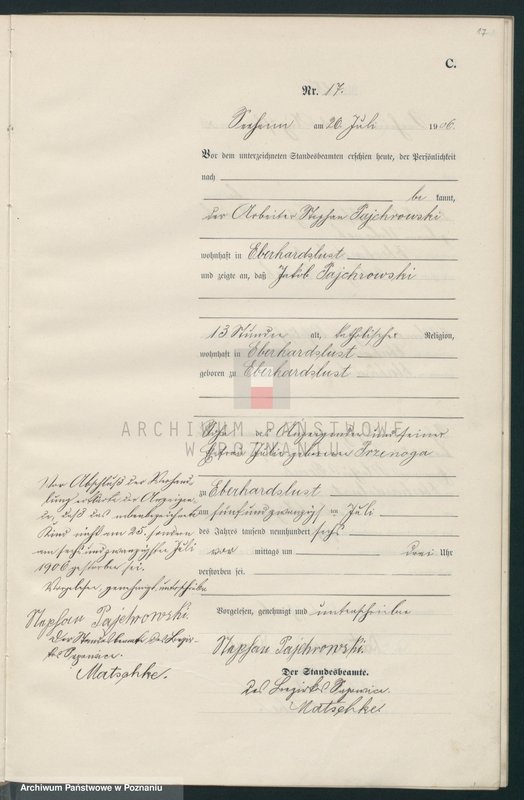 17
C.
Nr. 17.
Seeheim am 26. Juli 1906.
Vor dem unterzeichneten Standesbeamten erschien heute, der Persönlichkeit
nach
be kannt,
der Arbeiter Stephan Pajchrowski
wohnhaft in Eberhardslust
und zeigte an, daß Jakob Pajchrowski
13 Stunden alt, katholischer Religion,
wohnhaft in Eberhardslust
geboren zu Eberhardslust
ARCHIWUM PAŃSTWOWE
W POZNANIU
Sohn des Anzeigenden und seiner
Ehefrau Julia geborenen
zu Eberhardslust
am fünfundzwanzigsten Juli
des Jahres tausend neunhundert sechs
vor mittags um drei Uhr
verstorben sei.
Vor Abschluß der Verhand
lung erklärte der Anzeigen
de, daß das nebenbezeichnete
Kind nicht am 25. sondern
am sechsundzwanzigsten Juli
1906 gestorben sei.
Vorgelesen, genehmigt, unterschrieben
Stephan Pajchrowski.
Der Standesbeamte des Bezir-
kes
Matschke.
Vorgelesen, genehmigt und unterschrieben
Stephan Pajchrowski.
Der Standesbeamte.
Des Bezirkes
Matschke.
Archiwum Państwowe w Poznaniu